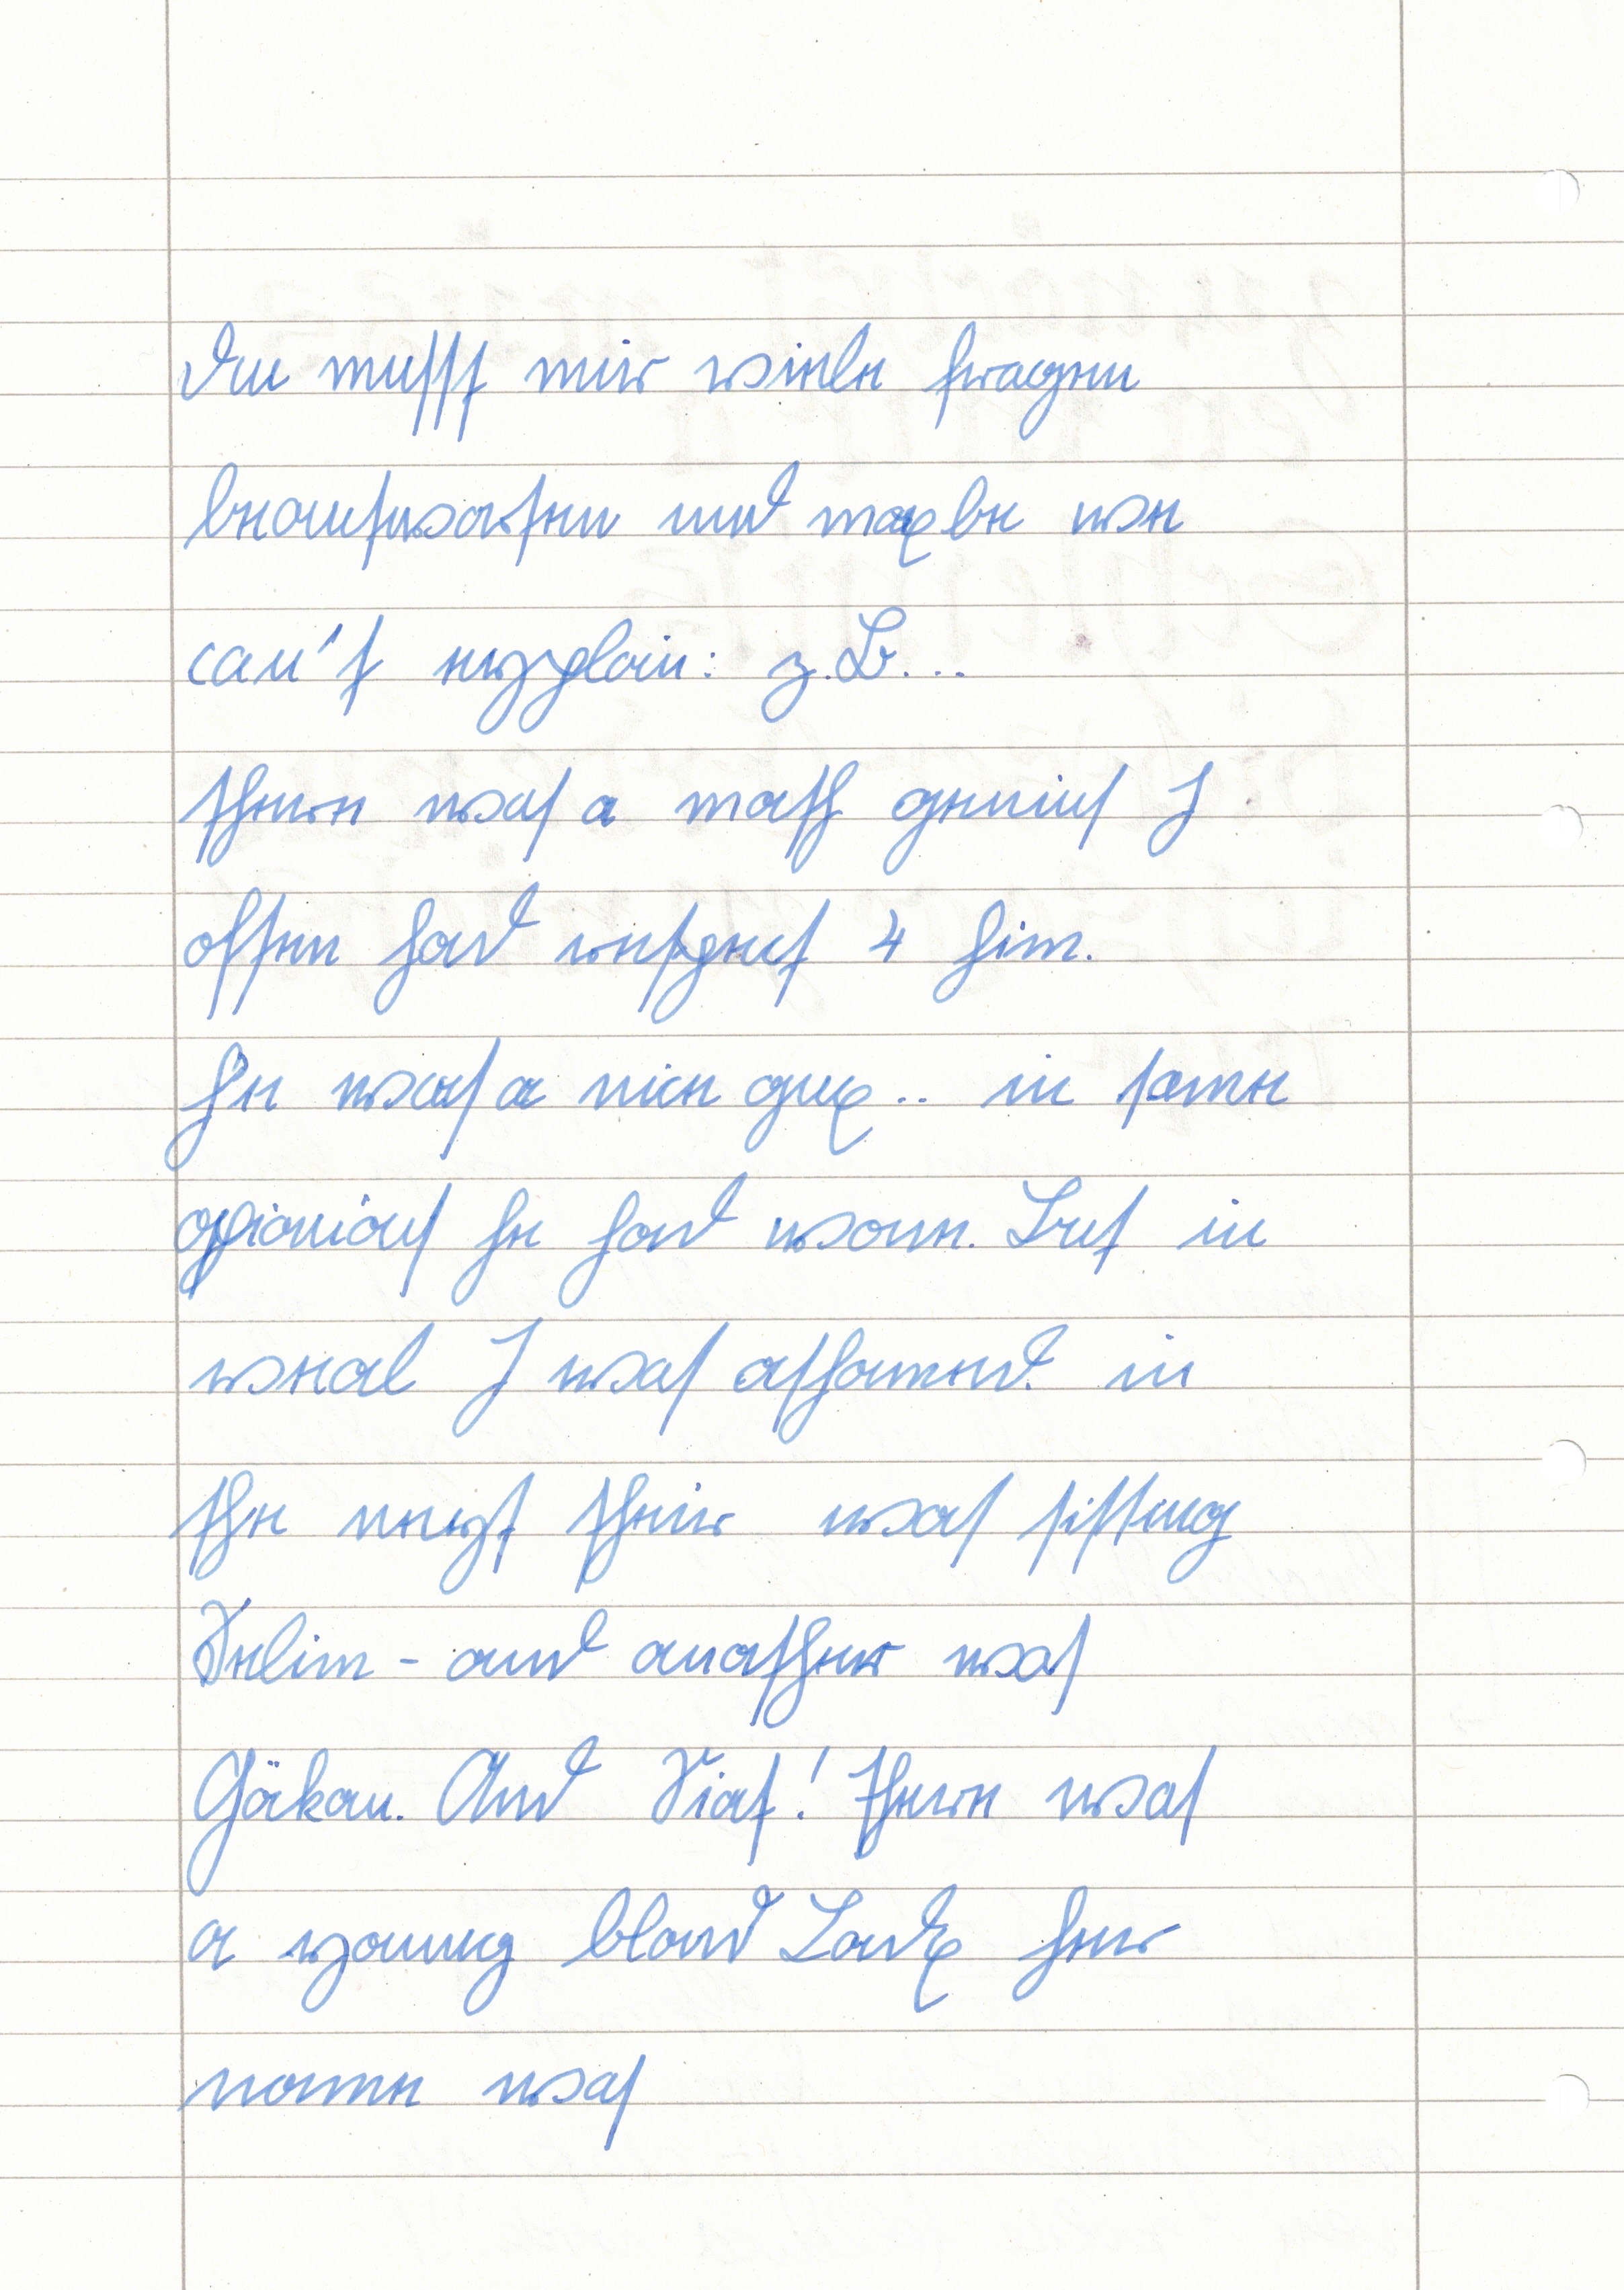 du musst mir viele fragen
beantwarten und maybe we
can't explain: z.B...
there was a math genius I
often had respect 4 him.
He was a nice guy.. in some
opinions he had wone. But in
weal I was ashamed. in
the next their was sitting
Selim - and another was
Gökan. And Siat! There was
a young blond Lady her
name was